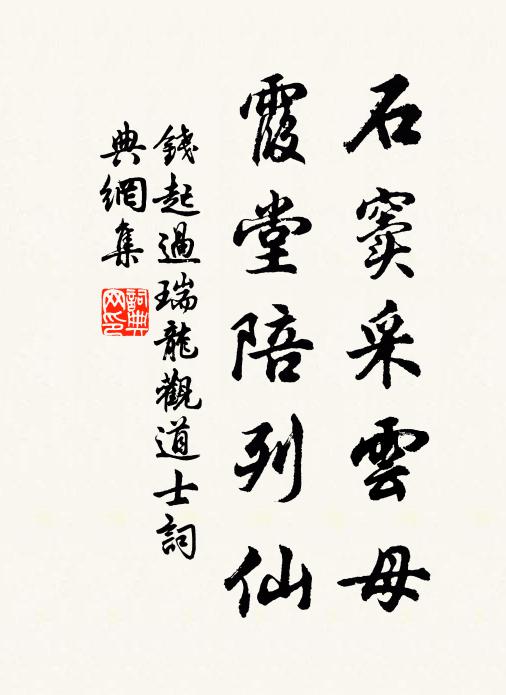 石竇采雲母
霞堂陪列仙
錢起過瑞龍觀道士詞
典網集
詞典
网印